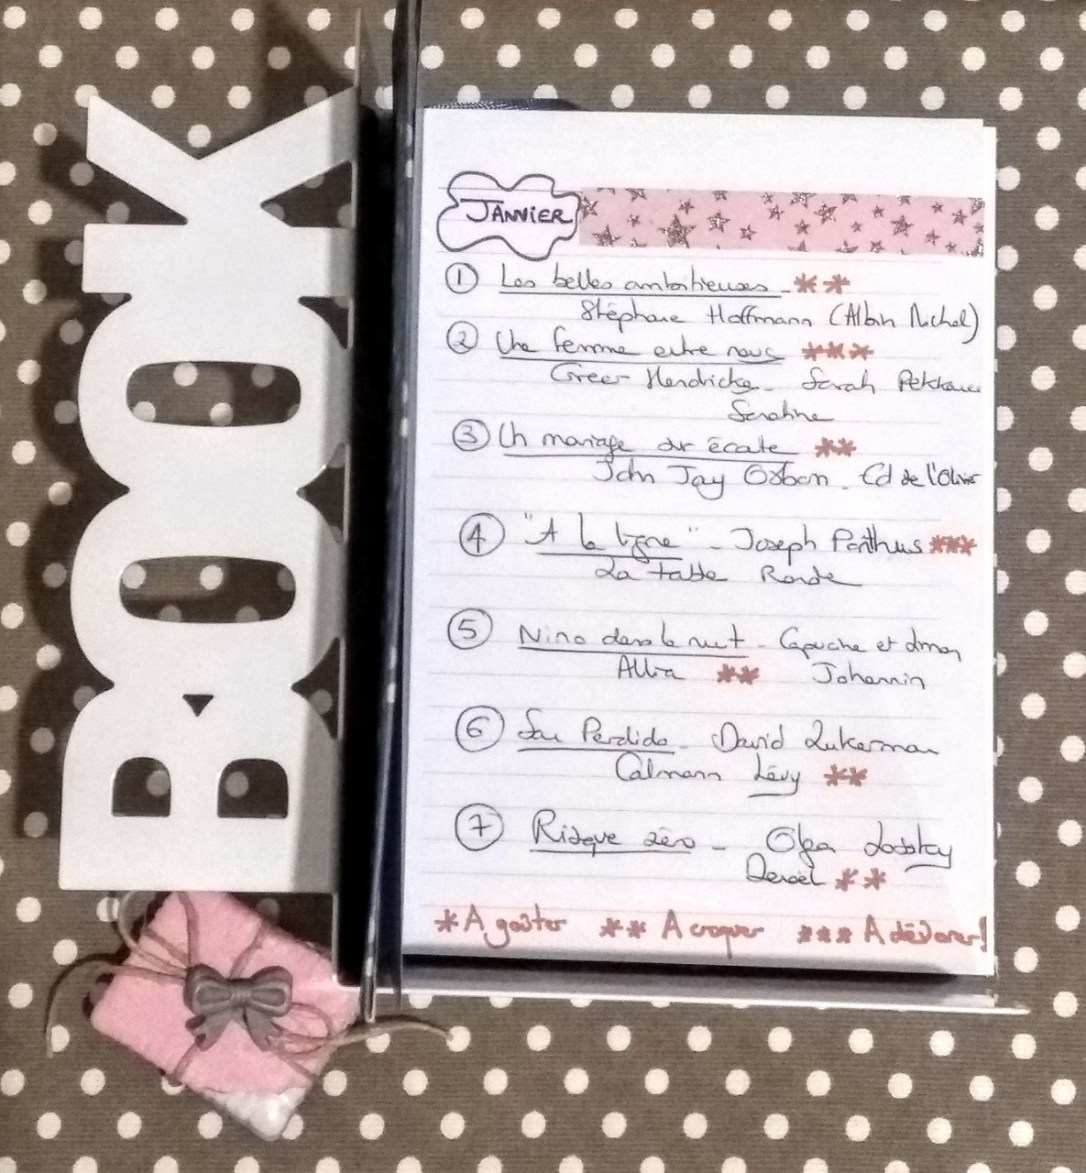 BOOK
JANVIER
① Les belles ambitieuses - **
Stéphane Hoffmann (Albin Michel)
② Une femme entre nous ***
Greer Hendricks - Sarah Pekkanen
Sonatine
③ Un mariage sur écoute **
John Jay Osborn - Ed de l'Olivier
④ "A la ligne" - Joseph Ponthus ***
La Table Ronde
⑤ Nino dans la nuit - Capucine et Simon
Allia ** Johannin
⑥ San Perdido - David Zukerman
Calmann Lévy **
⑦ Risque zéro - Olga Lossky
Denoël **
* A goûter ** A croquer *** A dévorer!